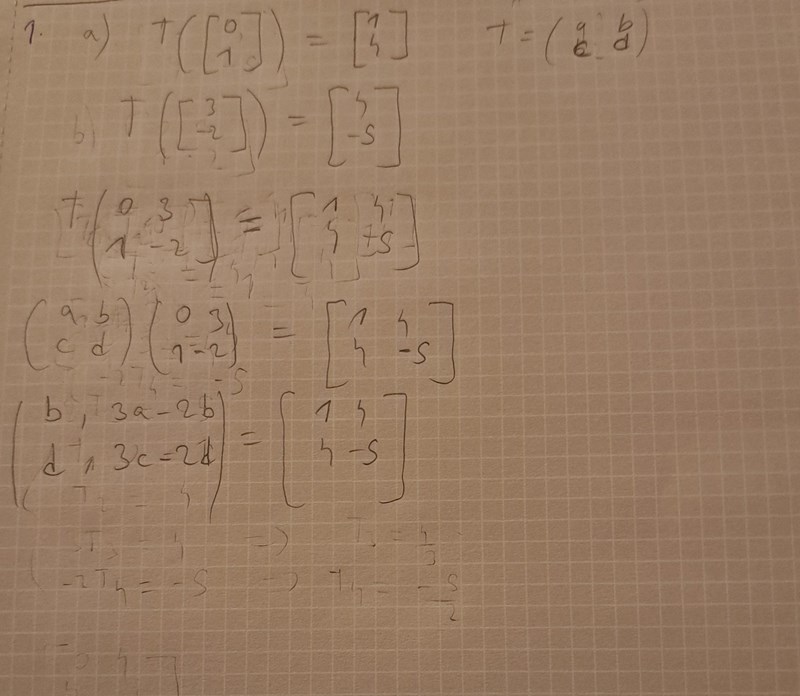 1. a) T([0 1]) = [1 4] T = (a b c d)
b) T([3 -2]) = [4 -5]
T(0 3 1 -2) = [1 4 4 -5]
(a b c d) (0 3 1 -2) = [1 4 4 -5]
(b, 3a-2b d, 3c-2d) = [1 4 4 -5]
-2T4 = -5 =>